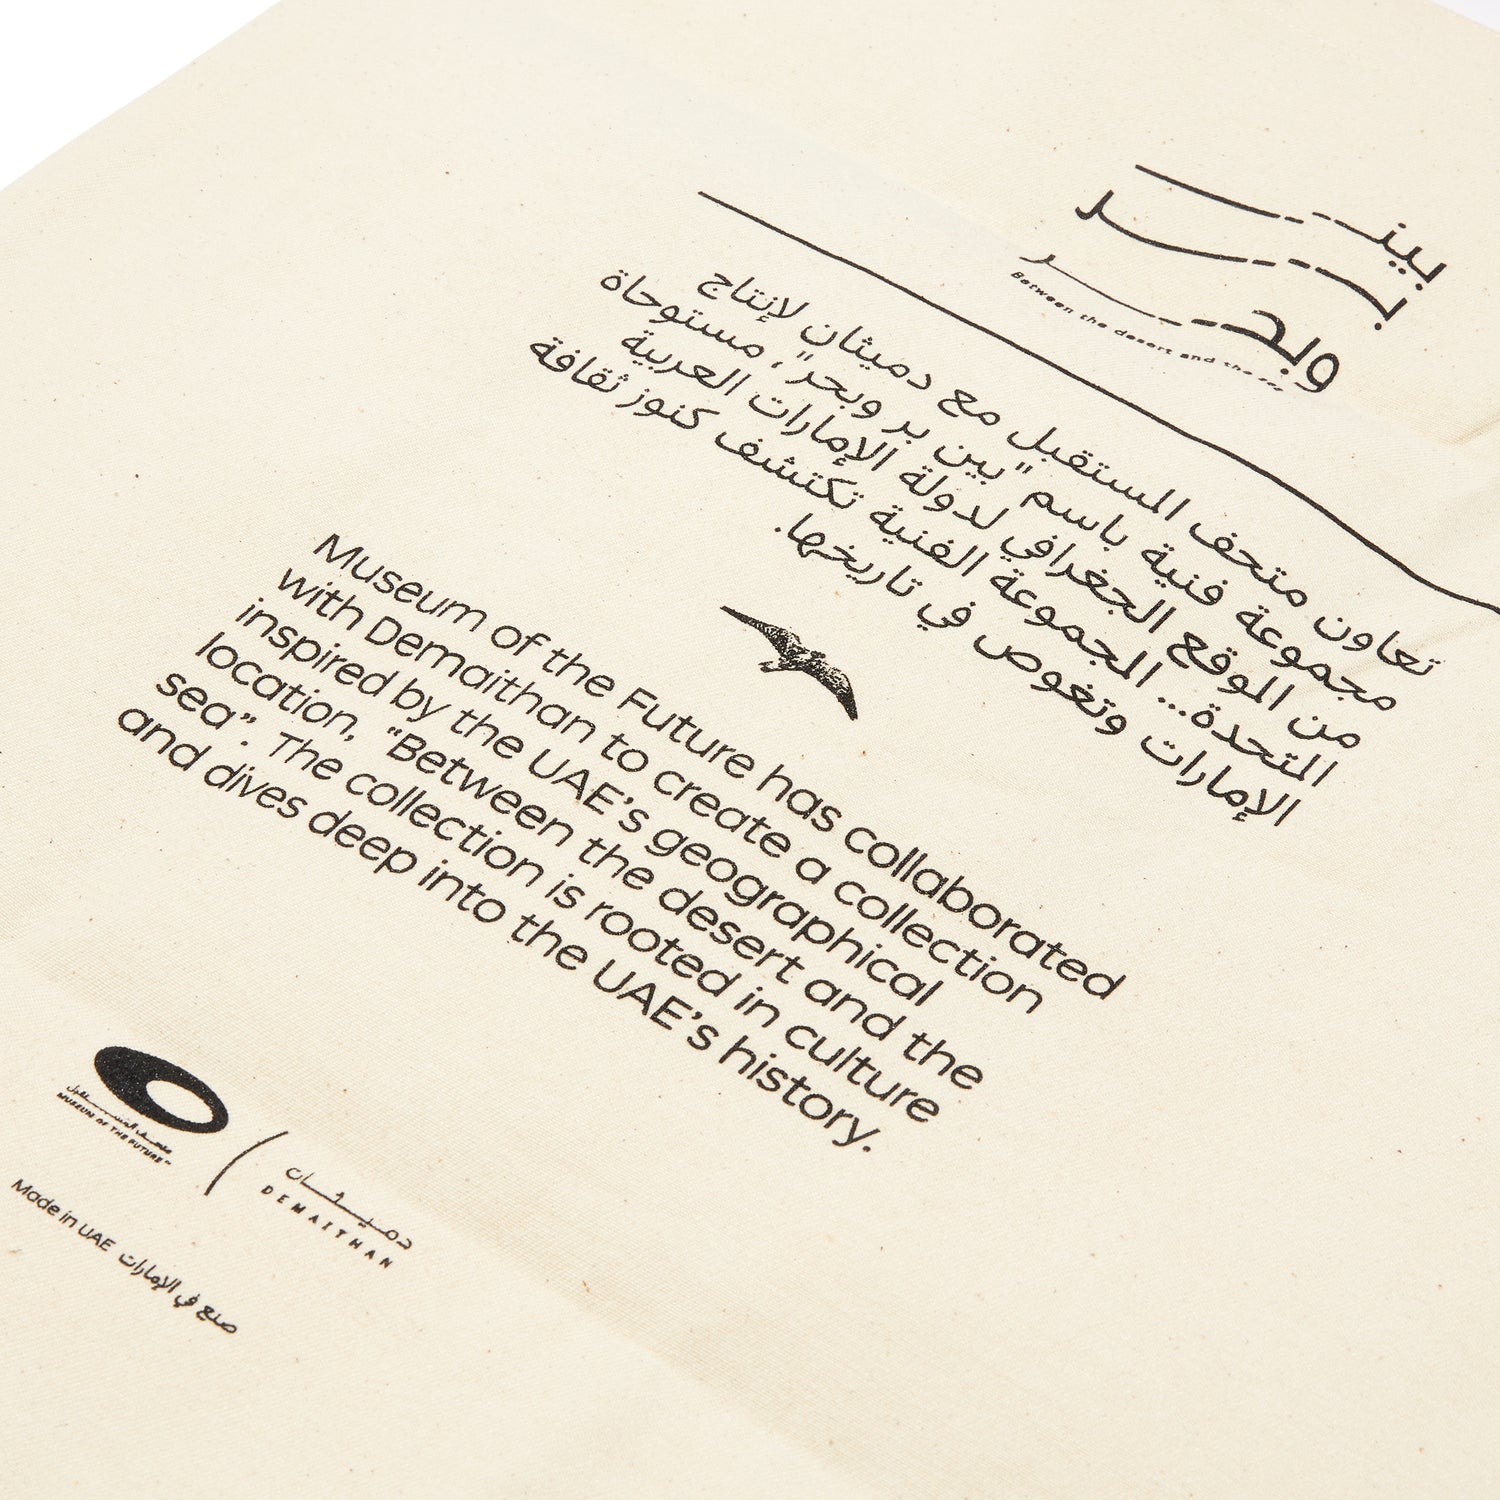 بين
بر
وبحر
Between the desert and the sea
تعاون متحف المستقبل مع دميثان لإنتاج
مجموعة فنية باسم "بين بر وبحر"، مستوحاة
من الموقع الجغرافي لدولة الإمارات العربية
المتحدة... المجموعة الفنية تكتشف كنوز ثقافة
الإمارات وتغوص في تاريخها.
Museum of the Future has collaborated
with Demaithan to create a collection
inspired by the UAE's geographical
location, "Between the desert and the
sea". The collection is rooted in culture
and dives deep into the UAE's history.
متحف المستقبل
MUSEUM OF THE FUTURE™
دميثان
DEMAITHAN
Made in UAE صنع في الإمارات